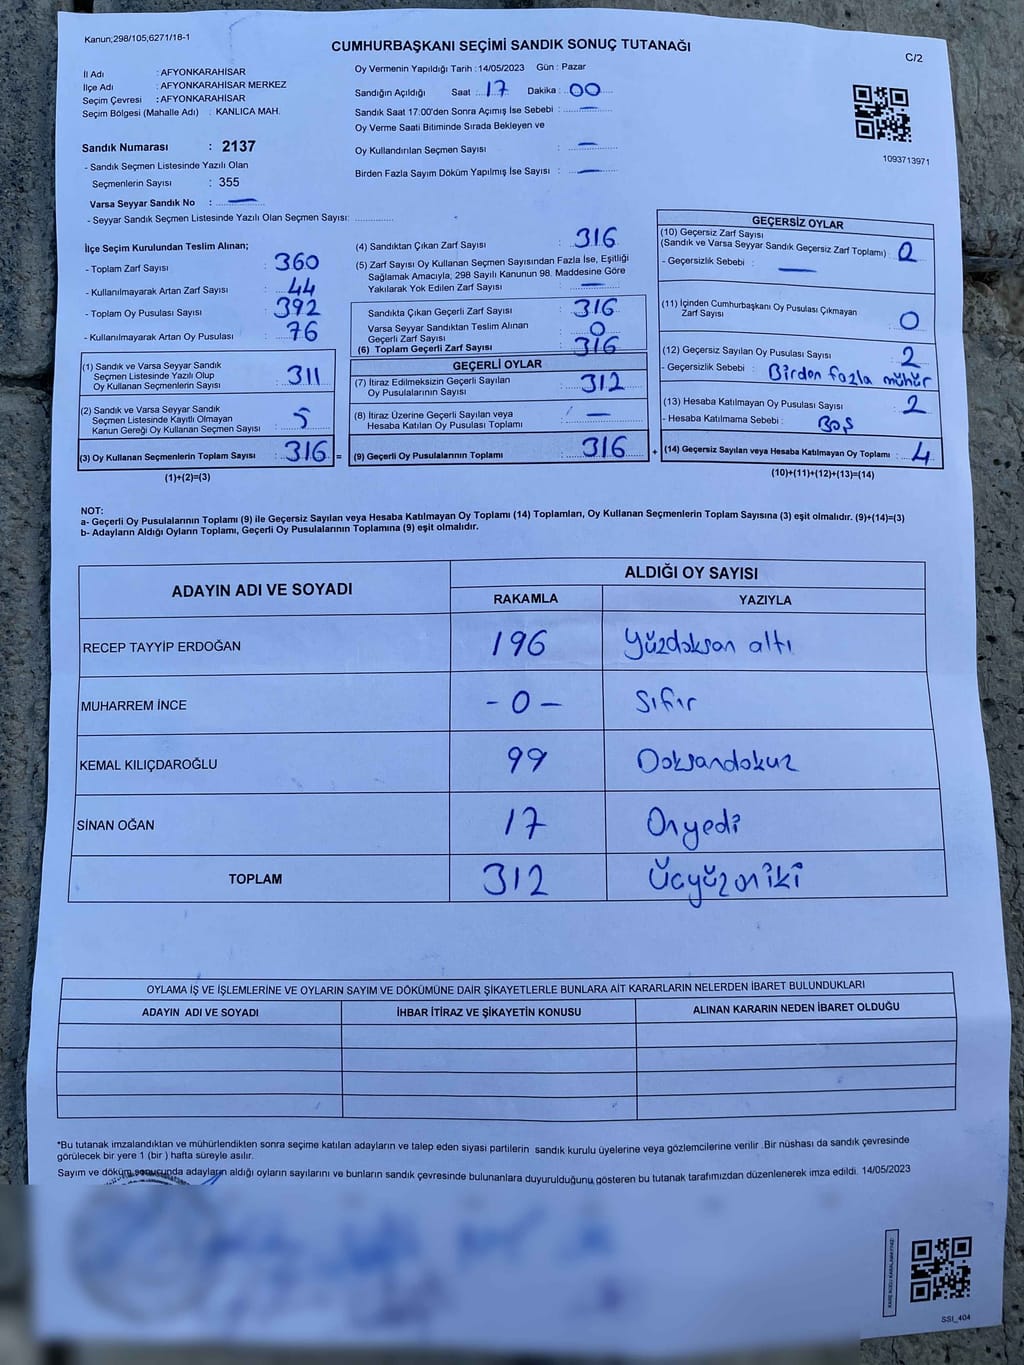 Kanun;298/105;6271/18-1
CUMHURBAŞKANI SEÇİMİ SANDIK SONUÇ TUTANAĞI
C/2
İl Adı : AFYONKARAHİSAR
İlçe Adı : AFYONKARAHİSAR MERKEZ
Seçim Çevresi : AFYONKARAHİSAR
Seçim Bölgesi (Mahalle Adı) : KANLICA MAH.
Sandık Numarası : 2137
- Sandık Seçmen Listesinde Yazılı Olan
Seçmenlerin Sayısı : 355
Varsa Seyyar Sandık No : —
- Seyyar Sandık Seçmen Listesinde Yazılı Olan Seçmen Sayısı: ..............
Oy Vermenin Yapıldığı Tarih : 14/05/2023 Gün : Pazar
Sandığın Açıldığı Saat : 17 Dakika : 00
Sandık Saat 17:00'den Sonra Açımış İse Sebebi : —
Oy Verme Saati Bitiminde Sırada Bekleyen ve
Oy Kullandırılan Seçmen Sayısı : —
Birden Fazla Sayım Döküm Yapılmış İse Sayısı : —
1093713971
İlçe Seçim Kurulundan Teslim Alınan;
- Toplam Zarf Sayısı : 360
- Kullanılmayarak Artan Zarf Sayısı : 44
- Toplam Oy Pusulası Sayısı : 392
- Kullanılmayarak Artan Oy Pusulası : 76
(1) Sandık ve Varsa Seyyar Sandık
Seçmen Listesinde Yazılı Olup
Oy Kullanan Seçmenlerin Sayısı : 311
(2) Sandık ve Varsa Seyyar Sandık
Seçmen Listesinde Kayıtlı Olmayan
Kanun Gereği Oy Kullanan Seçmen Sayısı : 5
(3) Oy Kullanan Seçmenlerin Toplam Sayısı : 316 =
(1)+(2)=(3)
(4) Sandıktan Çıkan Zarf Sayısı : 316
(5) Zarf Sayısı Oy Kullanan Seçmen Sayısından Fazla İse, Eşitliği
Sağlamak Amacıyla, 298 Sayılı Kanunun 98. Maddesine Göre
Yakılarak Yok Edilen Zarf Sayısı : —
Sandıkta Çıkan Geçerli Zarf Sayısı : 316
Varsa Seyyar Sandıktan Teslim Alınan
Geçerli Zarf Sayısı : 0
(6) Toplam Geçerli Zarf Sayısı : 316
GEÇERLİ OYLAR
(7) İtiraz Edilmeksizin Geçerli Sayılan
Oy Pusulalarının Sayısı : 312
(8) İtiraz Üzerine Geçerli Sayılan veya
Hesaba Katılan Oy Pusulası Toplamı : —
(9) Geçerli Oy Pusulalarının Toplamı : 316 +
GEÇERSİZ OYLAR
(10) Geçersiz Zarf Sayısı
(Sandık ve Varsa Seyyar Sandık Geçersiz Zarf Toplamı) : 0
- Geçersizlik Sebebi : —
(11) İçinden Cumhurbaşkanı Oy Pusulası Çıkmayan
Zarf Sayısı : 0
(12) Geçersiz Sayılan Oy Pusulası Sayısı : 2
- Geçersizlik Sebebi : Birden fazla mühür
(13) Hesaba Katılmayan Oy Pusulası Sayısı : 2
- Hesaba Katılmama Sebebi : Boş
(14) Geçersiz Sayılan veya Hesaba Katılmayan Oy Toplamı : 4
(10)+(11)+(12)+(13)=(14)
NOT:
a- Geçerli Oy Pusulalarının Toplamı (9) ile Geçersiz Sayılan veya Hesaba Katılmayan Oy Toplamı (14) Toplamları, Oy Kullanan Seçmenlerin Toplam Sayısına (3) eşit olmalıdır. (9)+(14)=(3)
b- Adayların Aldığı Oyların Toplamı, Geçerli Oy Pusulalarının Toplamına (9) eşit olmalıdır.
ADAYIN ADI VE SOYADI
ALDIĞI OY SAYISI
RAKAMLA YAZIYLA
RECEP TAYYİP ERDOĞAN 196 Yüzdoksan altı
MUHARREM İNCE - 0 - Sıfır
KEMAL KILIÇDAROĞLU 99 Doksandokuz
SİNAN OĞAN 17 Onyedi
TOPLAM 312 Üçyüzoniki
OYLAMA İŞ VE İŞLEMLERİNE VE OYLARIN SAYIM VE DÖKÜMÜNE DAİR ŞİKAYETLERLE BUNLARA AİT KARARLARIN NELERDEN İBARET BULUNDUKLARI
ADAYIN ADI VE SOYADI İHBAR İTİRAZ VE ŞİKAYETİN KONUSU ALINAN KARARIN NEDEN İBARET OLDUĞU
*Bu tutanak imzalandıktan ve mühürlendikten sonra seçime katılan adayların ve talep eden siyasi partilerin sandık kurulu üyelerine veya gözlemcilerine verilir .Bir nüshası da sandık çevresinde
görülecek bir yere 1 (bir ) hafta süreyle asılır.
Sayım ve döküm sonucunda adayların aldığı oyların sayılarını ve bunların sandık çevresinde bulunanlara duyurulduğunu gösteren bu tutanak tarafımızdan düzenlenerek imza edildi. 14/05/2023
SSI_404